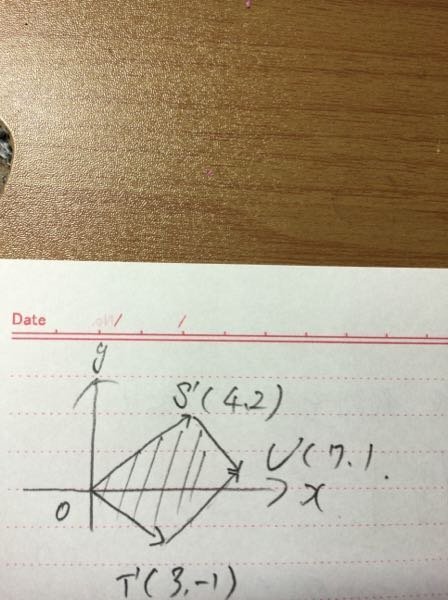 Date / /
y
S'(4,2)
U(7,1.
O
x
T'(3,-1)